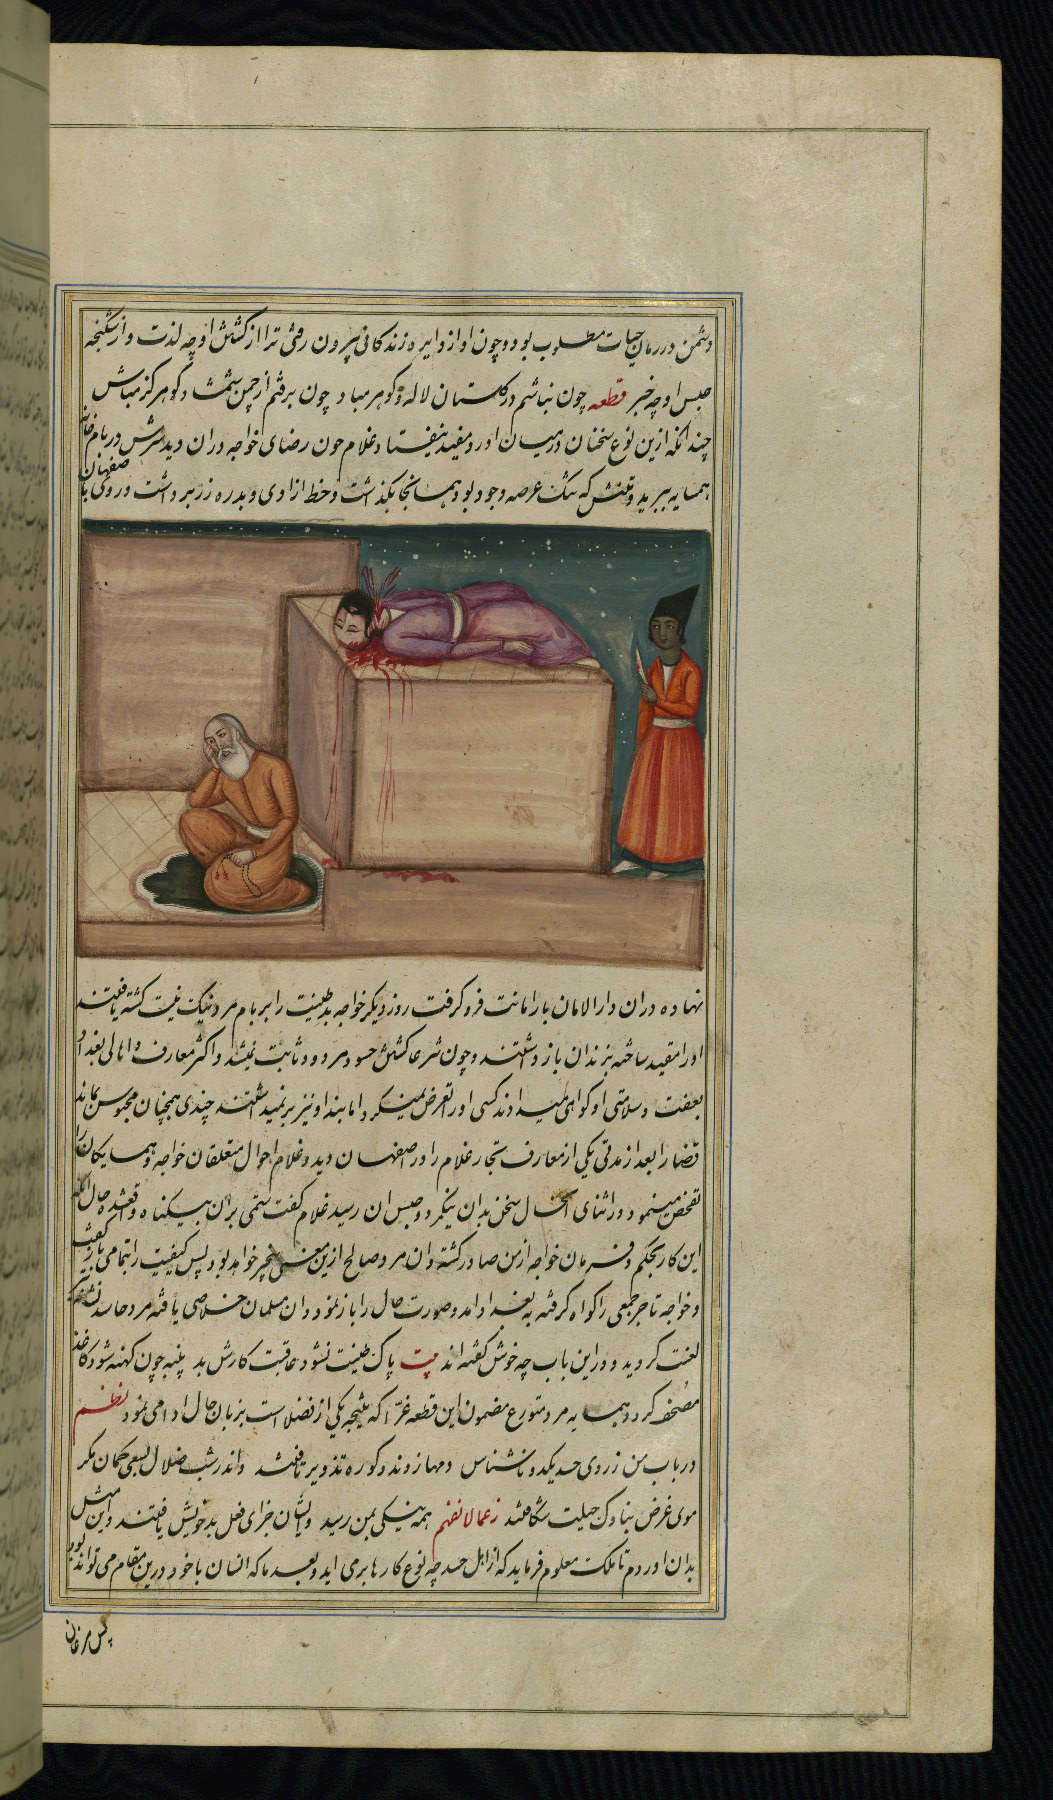 دشمن در زمان حیات مطلوب بود و چون او از دایره زندگانی بیرون رفتی ترا از کشش او چه لذت و از شکنجه
حبس او چه خبر قطعه چون نباشم در گلستان لاله و گو هر مباد چون برفتم از چمن شمشاد گو هرگز مباش
چندانکه ازین نوع سخنان در میان اورد مفید نیفتاد غلام چون رضای خواجه در ان دید سرش در بام خانه
همسایه ببرید و تنش که ننگ عرصه وجود بود همانجا بگذاشت و خط ازادی و بدره زر برداشت و روی با صفهان
نهاده در ان دارالامان بار امانت فرو گرفت روز دیگر خواجه بد طینت را بر بام مرد نیک نیت کشته یافتند
او را مقید ساخته بزندان باز داشتند و چون شرعا کشتن حسود مرو و ثابت نمیشد و اکثر معارف و اهالی بغداد
بعفت و سلامتی او گواهی میدادند کسی او را تعرض نمینکرد اما بند او نیز بر نمیداشتند چندی همچنان محبوس بماند
قضا را بعد از مدتی یکی از معارف تجار غلام را در اصفهان دید و غلام احوال متعلقان خواجه و همسایکان را
تفحص مینمود در اثنای الحال سخن بدان نیکمرد و حبس ان رسید غلام گفت ستمی بران بیگناه واقعشده حال انکه
این کار بحکم و فرمان خواجه از من صادر گشته و ان مرد صالح ازین معنی بیخبر خواهد بود پس کیفیت را بتمامی باز گفت
و خواجه تاجر جمعی را گواه گرفته به بغداد امد و صورت حال را باز نمود و ان مسلمان خلاصی یافته مرد حاسد نشانه
لعنت گردید و در این باب چه خوش گفته اند بیت پاک طینت نشود عاقبت کارش بد پنبه چون کهنه شود کاغذ
مصحف گردد همسایه مرد متورع مضمون این قطعه غرا که نتیجه یکی از فضلا است بزبان حال ادا می نمود نظم
در باب من ز روی حسد یکدو ناشناس دمها زدند و کوره تذویر تافتند واندر شب ضلال بسعی کمان مکر
موی غرض بناوک حیلت شکافتند زعما لانفهم همه نیکی بمن رسید و ایشان جزای فعل بد خویش یافتند و این مثل
بدان اوردم تا ملک معلوم فرماید که از اهل حسد چه نوع کارها بر می اید و بعد ما که انسان با خود درین مقام می تواند بود
پس مرغان